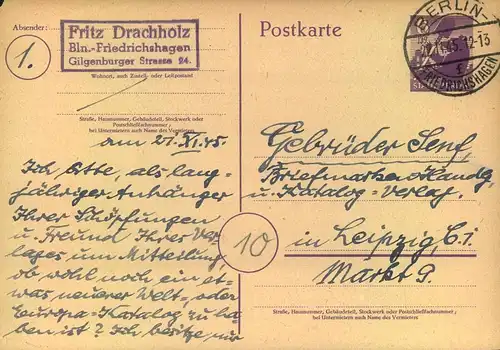 Absender:
Fritz Drachholz
Bln.-Friedrichshagen
Gilgenburger Strasse 24.
Wohnort, auch Zustell- oder Leitpostamt
1.
Straße, Hausnummer, Gebäudeteil, Stockwerk oder
Postschließfachnummer;
bei Untermietern auch Name des Vermieters
am 21.XI.45.
Ich bitte, als lang-
jähriger Anhänger
Ihrer Schöpfungen
u. Freund Ihres Ver-
lages um Mitteilung,
ob wohl noch ein et-
was neuerer Welt-, oder
Europa-Katalog zu ha-
ben ist? Ich besitze nur
Postkarte
BERLIN-
45.12-13
FRIEDRICHSHAGEN
Gebrüder Senf,
Briefmarken-Handlg
u. Katalog-Verlag.
10
in Leipzig C.1.
Markt 9.
Straße, Hausnummer, Gebäudeteil, Stockwerk oder Postschließfachnummer;
bei Untermietern auch Name des Vermieters